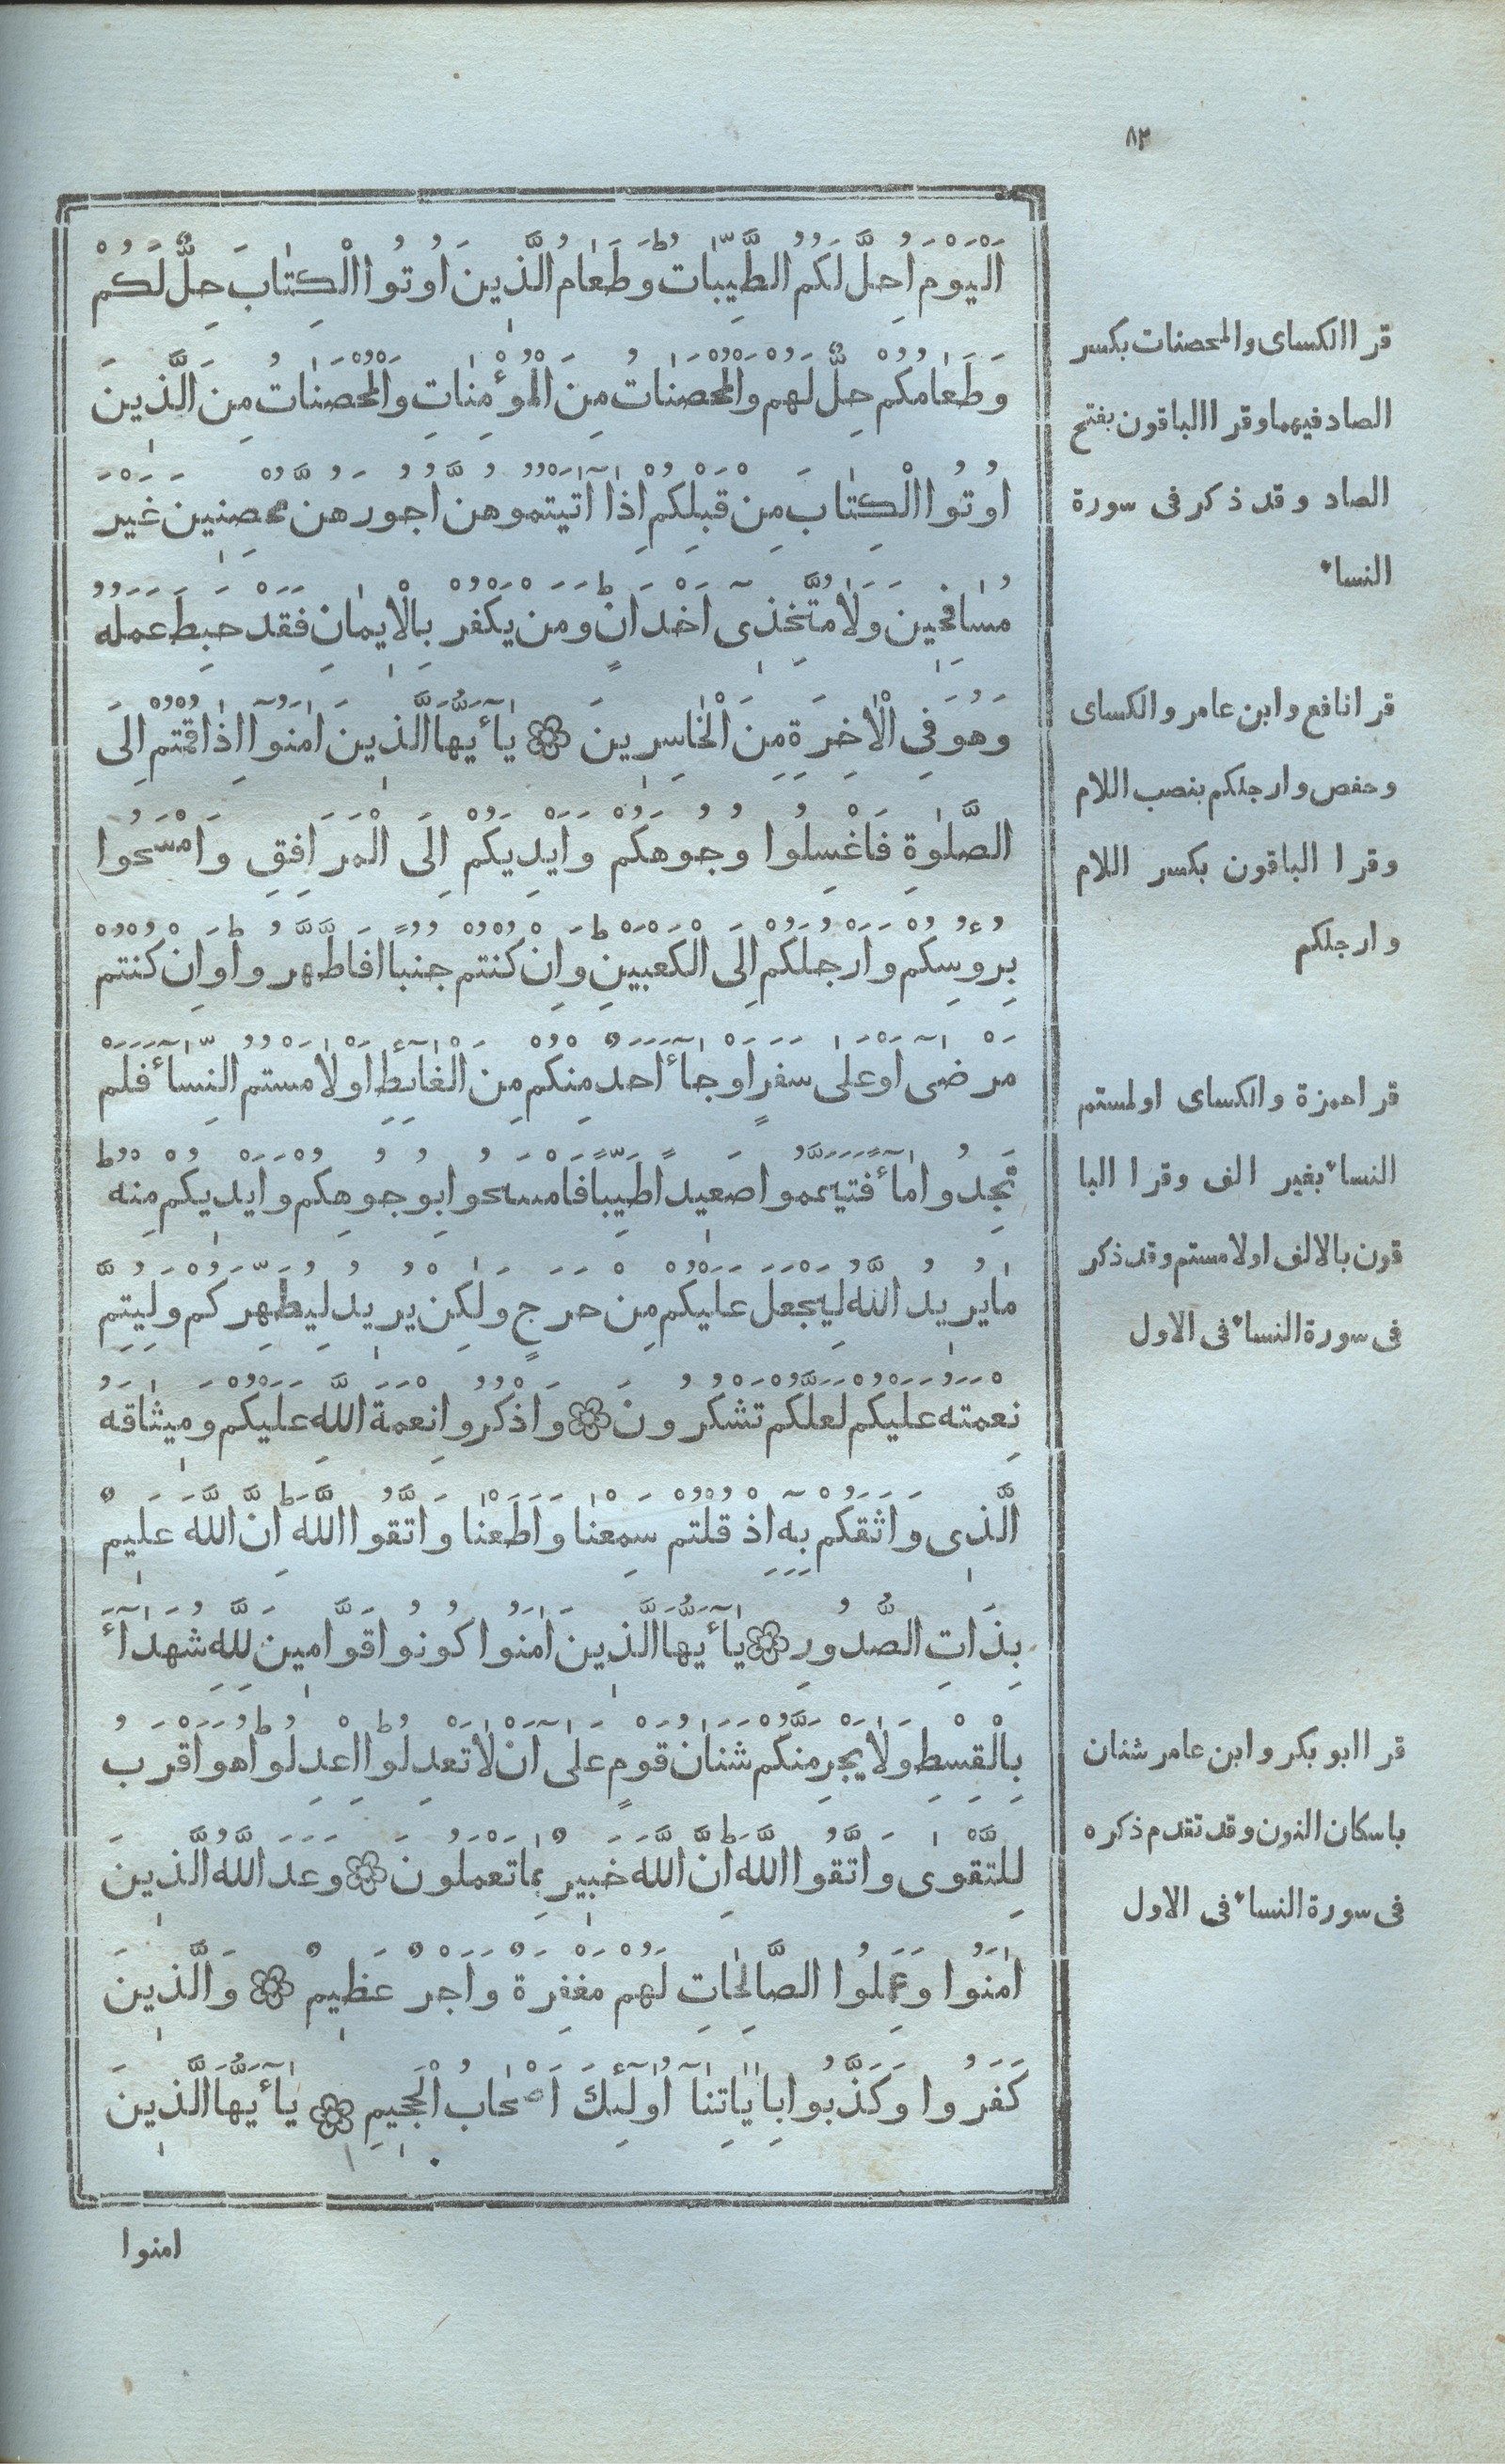 ٨٣
اَلْيَوْمَ اُحِلَّ لَكُمُ الطَّيِّبَاتُ وَطَعَامُ الَّذِينَ اُوتُوا الْكِتَابَ حِلٌّ لَكُمْ
وَطَعَامُكُمْ حِلٌّ لَهُمْ وَالْمُحْصَنَاتُ مِنَ الْمُؤْمِنَاتِ وَالْمُحْصَنَاتُ مِنَ الَّذِينَ
اُوتُوا الْكِتَابَ مِنْ قَبْلِكُمْ اِذَا اٰتَيْتُمُوهُنَّ اُجُورَهُنَّ مُحْصِنِينَ غَيْرَ
مُسَافِحِينَ وَلَا مُتَّخِذِىٓ اَخْدَانٍ وَمَنْ يَكْفُرْ بِالْاِيمَانِ فَقَدْ حَبِطَ عَمَلُهُ
وَهُوَ فِى الْاٰخِرَةِ مِنَ الْخَاسِرِينَ ۝ يَآ أَيُّهَا الَّذِينَ اٰمَنُوٓا اِذَا قُمْتُمْ اِلَى
الصَّلٰوةِ فَاغْسِلُوا وُجُوهَكُمْ وَاَيْدِيَكُمْ اِلَى الْمَرَافِقِ وَامْسَحُوا
بِرُؤُسِكُمْ وَاَرْجُلَكُمْ اِلَى الْكَعْبَيْنِ وَاِنْ كُنْتُمْ جُنُبًا فَاطَّهَّرُوا وَاِنْ كُنْتُمْ
مَرْضٰىٓ اَوْ عَلٰى سَفَرٍ اَوْ جَآءَ اَحَدٌ مِنْكُمْ مِنَ الْغَآئِطِ اَوْ لَامَسْتُمُ النِّسَآءَ فَلَمْ
تَجِدُوا مَآءً فَتَيَمَّمُوا صَعِيدًا طَيِّبًا فَامْسَحُوا بِوُجُوهِكُمْ وَاَيْدِيكُمْ مِنْهُ
مَا يُرِيدُ اللَّهُ لِيَجْعَلَ عَلَيْكُمْ مِنْ حَرَجٍ وَلٰكِنْ يُرِيدُ لِيُطَهِّرَكُمْ وَلِيُتِمَّ
نِعْمَتَهُ عَلَيْكُمْ لَعَلَّكُمْ تَشْكُرُونَ ۝ وَاذْكُرُوا نِعْمَةَ اللَّهِ عَلَيْكُمْ وَمِيثَاقَهُ
الَّذِى وَاثَقَكُمْ بِهِٓ اِذْ قُلْتُمْ سَمِعْنَا وَاَطَعْنَا وَاتَّقُوا اللَّهَ اِنَّ اللَّهَ عَلِيمٌ
بِذَاتِ الصُّدُورِ ۝ يَآ أَيُّهَا الَّذِينَ اٰمَنُوا كُونُوا قَوَّامِينَ لِلَّهِ شُهَدَآءَ
بِالْقِسْطِ وَلَا يَجْرِمَنَّكُمْ شَنَاٰنُ قَوْمٍ عَلٰىٓ اَنْ لَا تَعْدِلُوا اِعْدِلُوا هُوَ اَقْرَبُ
لِلتَّقْوٰى وَاتَّقُوا اللَّهَ اِنَّ اللَّهَ خَبِيرٌ بِمَا تَعْمَلُونَ ۝ وَعَدَ اللَّهُ الَّذِينَ
اٰمَنُوا وَعَمِلُوا الصَّالِحَاتِ لَهُمْ مَغْفِرَةٌ وَاَجْرٌ عَظِيمٌ ۝ وَالَّذِينَ
كَفَرُوا وَكَذَّبُوا بِاٰيَاتِنَآ اُولٰٓئِكَ اَصْحَابُ الْجَحِيمِ ۝ يَآ أَيُّهَا الَّذِينَ
امنوا
قرا الكساى والمحصنات بكسر
الصاد فيهما وقرا الباقون بفتح
الصاد وقد ذكر فى سورة
النساء
قرا نافع وابن عامر والكساى
وحفص وارجلكم بنصب اللام
وقرا الباقون بكسر اللام
وارجلكم
قرا حمزة والكساى اولمستم
النساء بغير الف وقرا البا
قون بالالف اولامستم وقد ذكر
فى سورة النساء فى الاول
قرا ابو بكر وابن عامر شنان
باسكان النون وقد تقدم ذكره
فى سورة النساء فى الاول